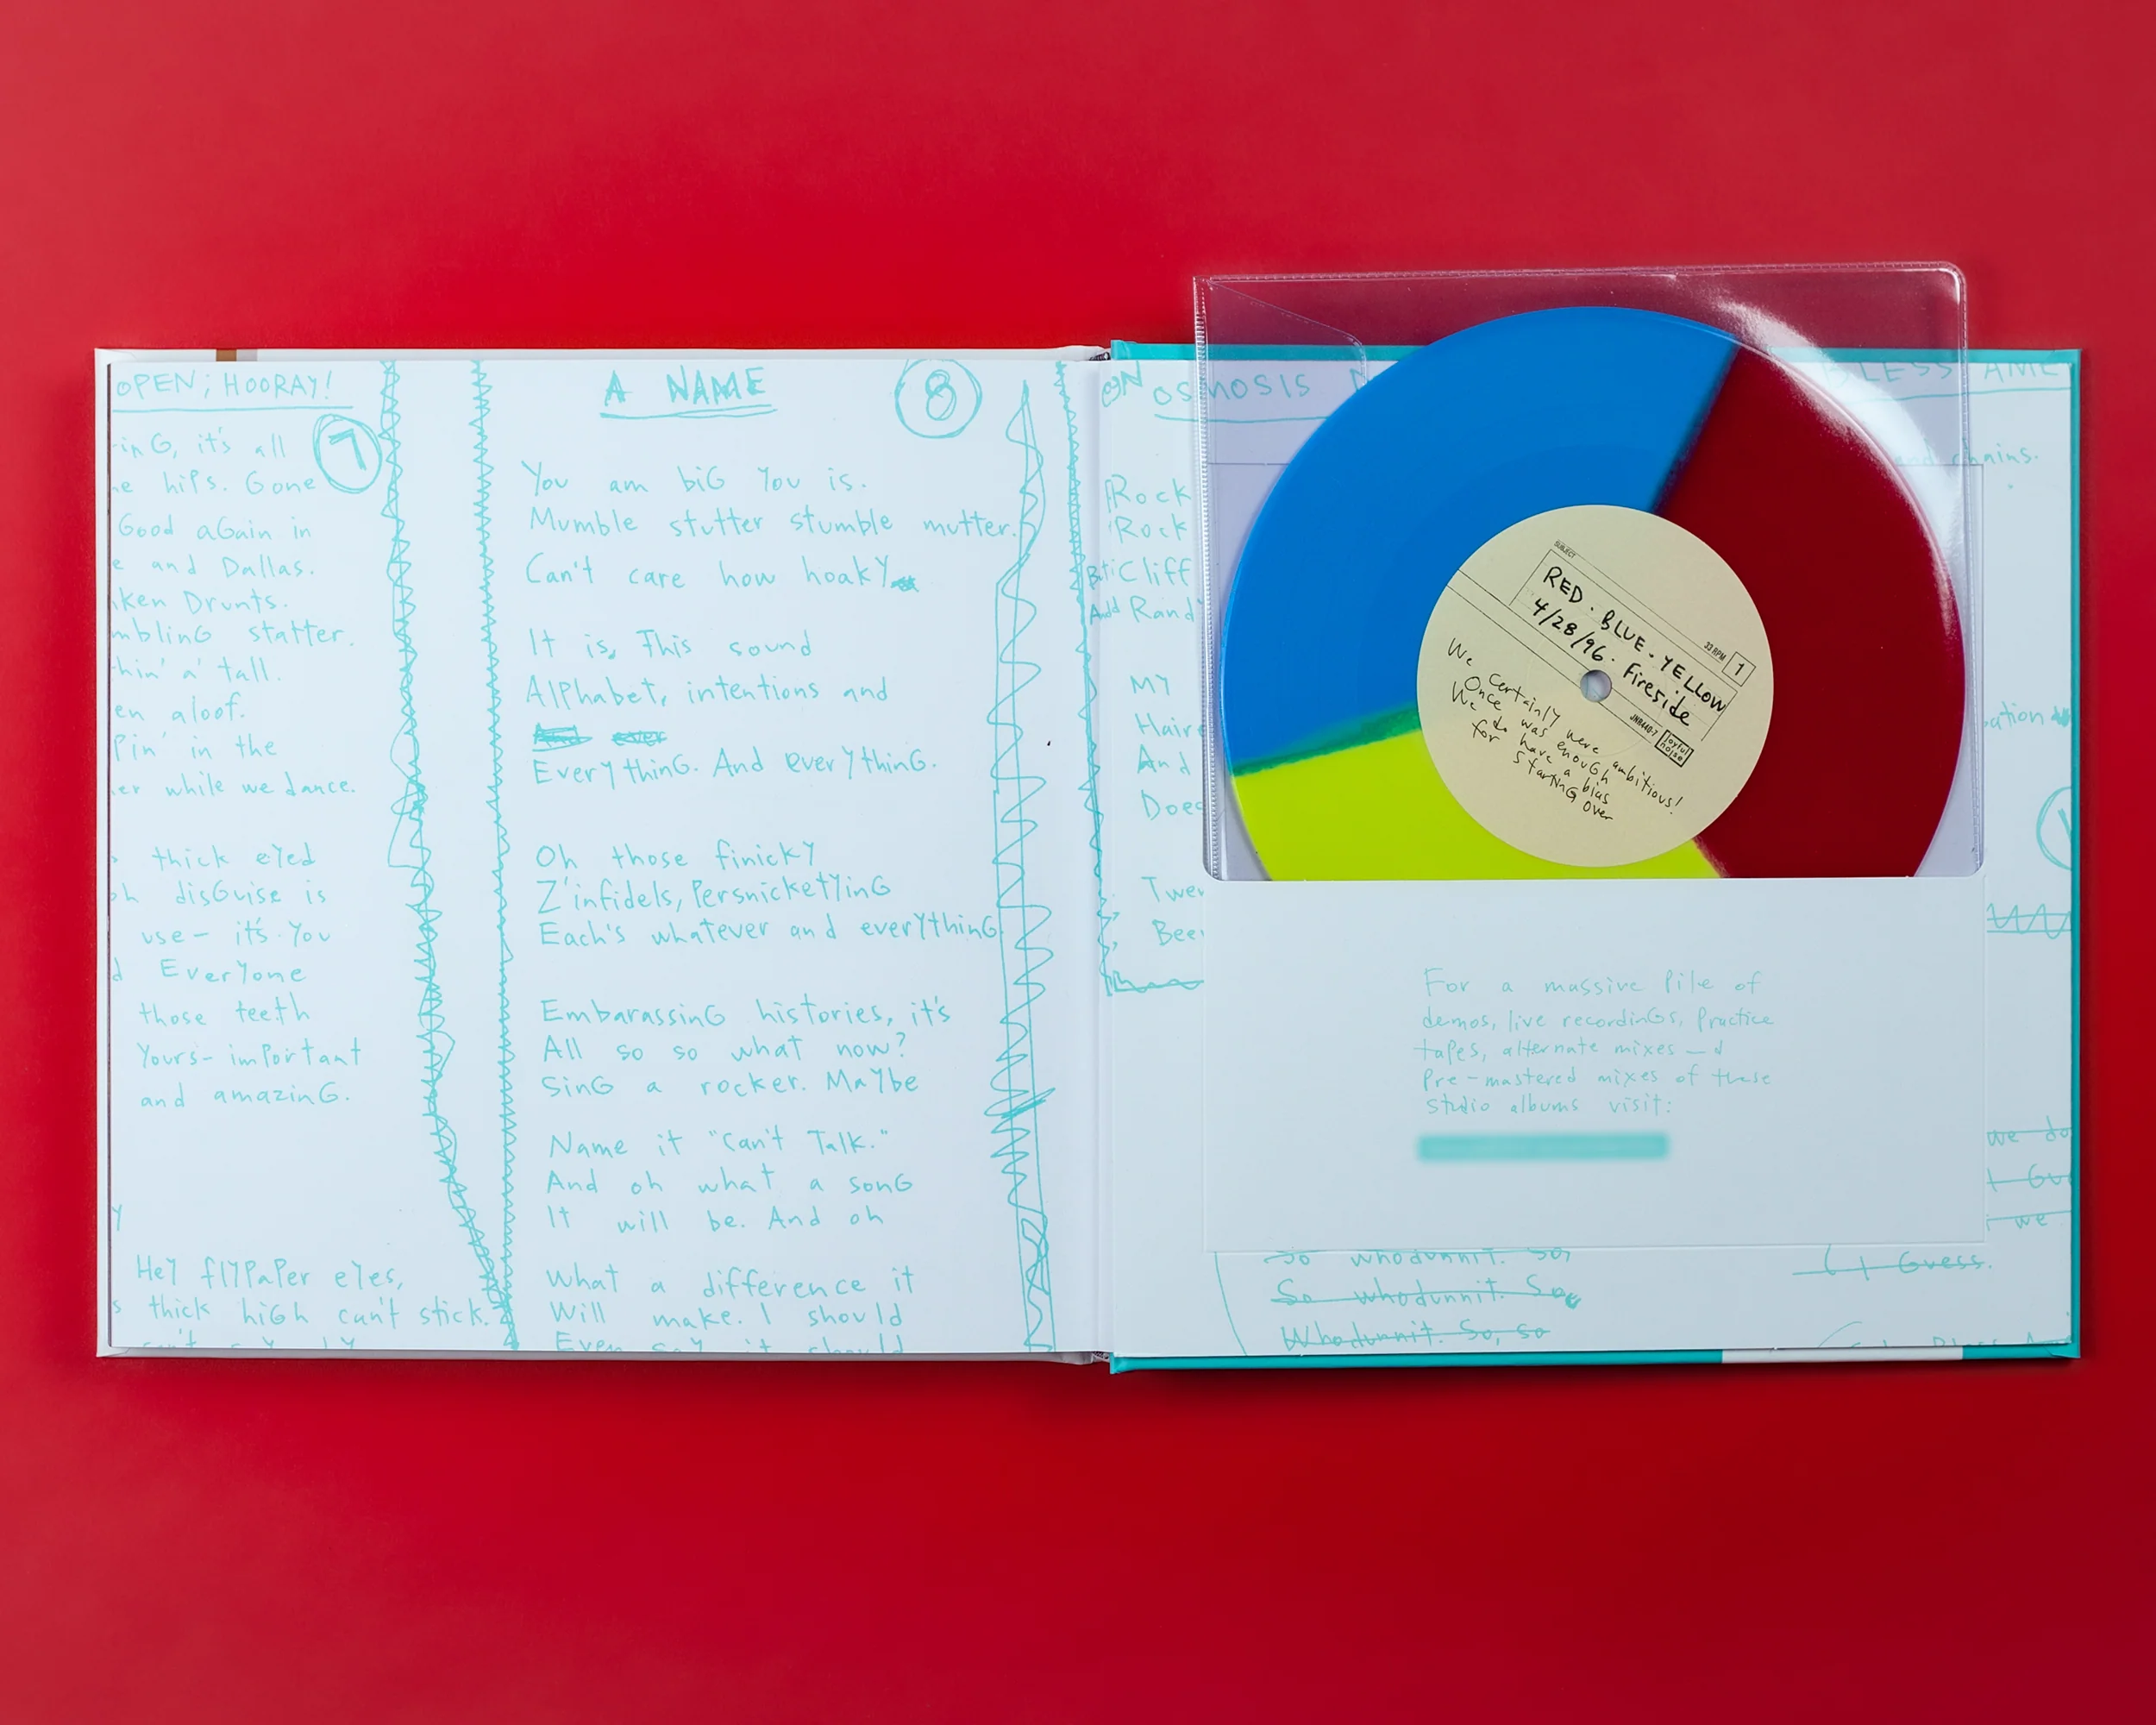 OPEN; HOORAY!
7
inG, it's all
hips. Gone
Good aGain in
and Dallas.
Drunts.
statter.
a' tall.
aloof.
in the
while we dance.
thick eyed
disGuise is
use- it's you
Everyone
those teeth
Yours- important
and amazinG.
Hey flypaper eyes,
thick hiGh can't stick.
A NAME
8
You am biG you is.
Mumble stutter stumble mutter.
Can't care how hoaky
It is, This sound
Alphabet, intentions and
EverythinG. And everythinG.
Oh those finicky
Z'infidels, PersnicketyinG
Each's whatever and everythinG
EmbarassinG histories, it's
All so so what now?
SinG a rocker. Maybe
Name it "Can't Talk."
And oh what a sonG
It will be. And oh
What a difference it
Will make. I should
Even say it should
OSMOSIS
BLESS
Rock
Rock
Cliff
And Rand
chains.
MY
And
RED. BLUE. YELLOW
4/28/96. Fireside
SUBJECT
33 RPM
1
JNR440-7
joyful noise
We certainly were ambitious!
Once was enouGh
We do have a bias
for startinG over
For a massive pile of
demos, live recordinGs, practice
tapes, alternate mixes and
Pre-mastered mixes of these
studio albums visit:
we do
we
So whodunnit. So,
So whodunnit. So,
Whodunnit. So, so
I Guess.